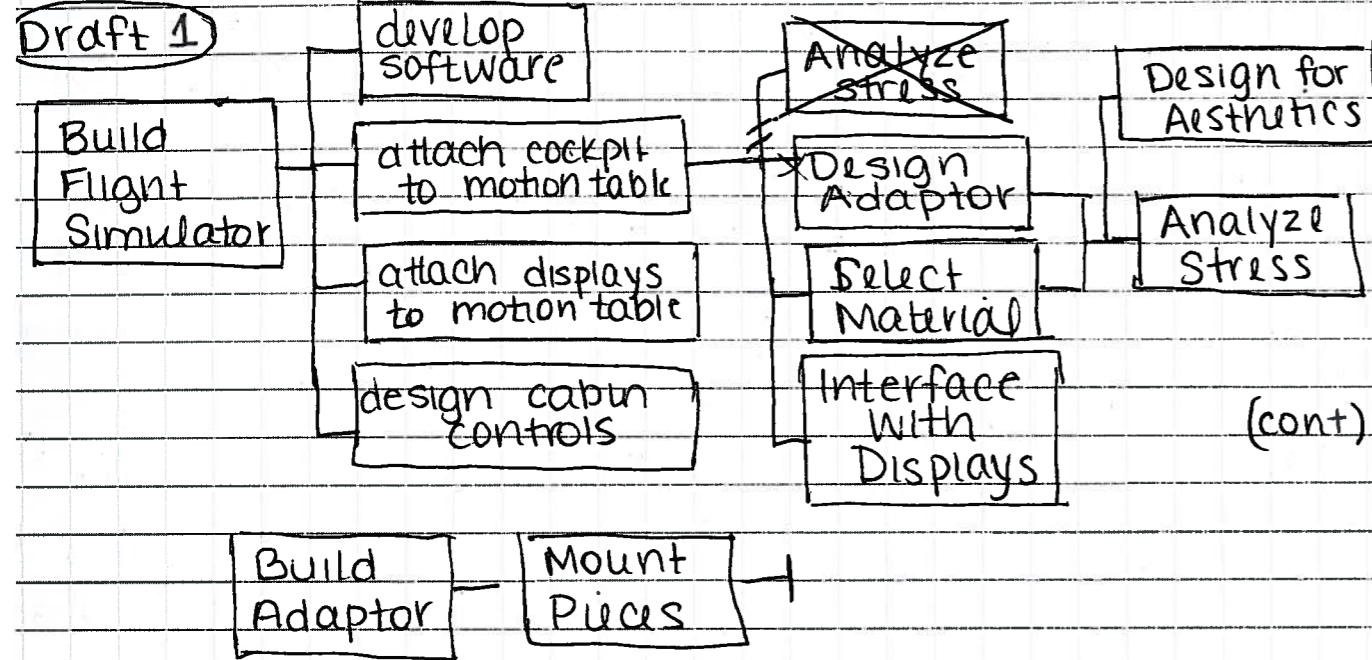 Draft 1
develop
software
Build
Flight
Simulator
attach cockpit
to motion table
attach displays
to motion table
design cabin
controls
Analyze
stress
Design
Adaptor
Select
Material
Interface
with
Displays
Design for
Aesthetics
Analyze
Stress
(cont)
Build
Adaptor
Mount
Pieces